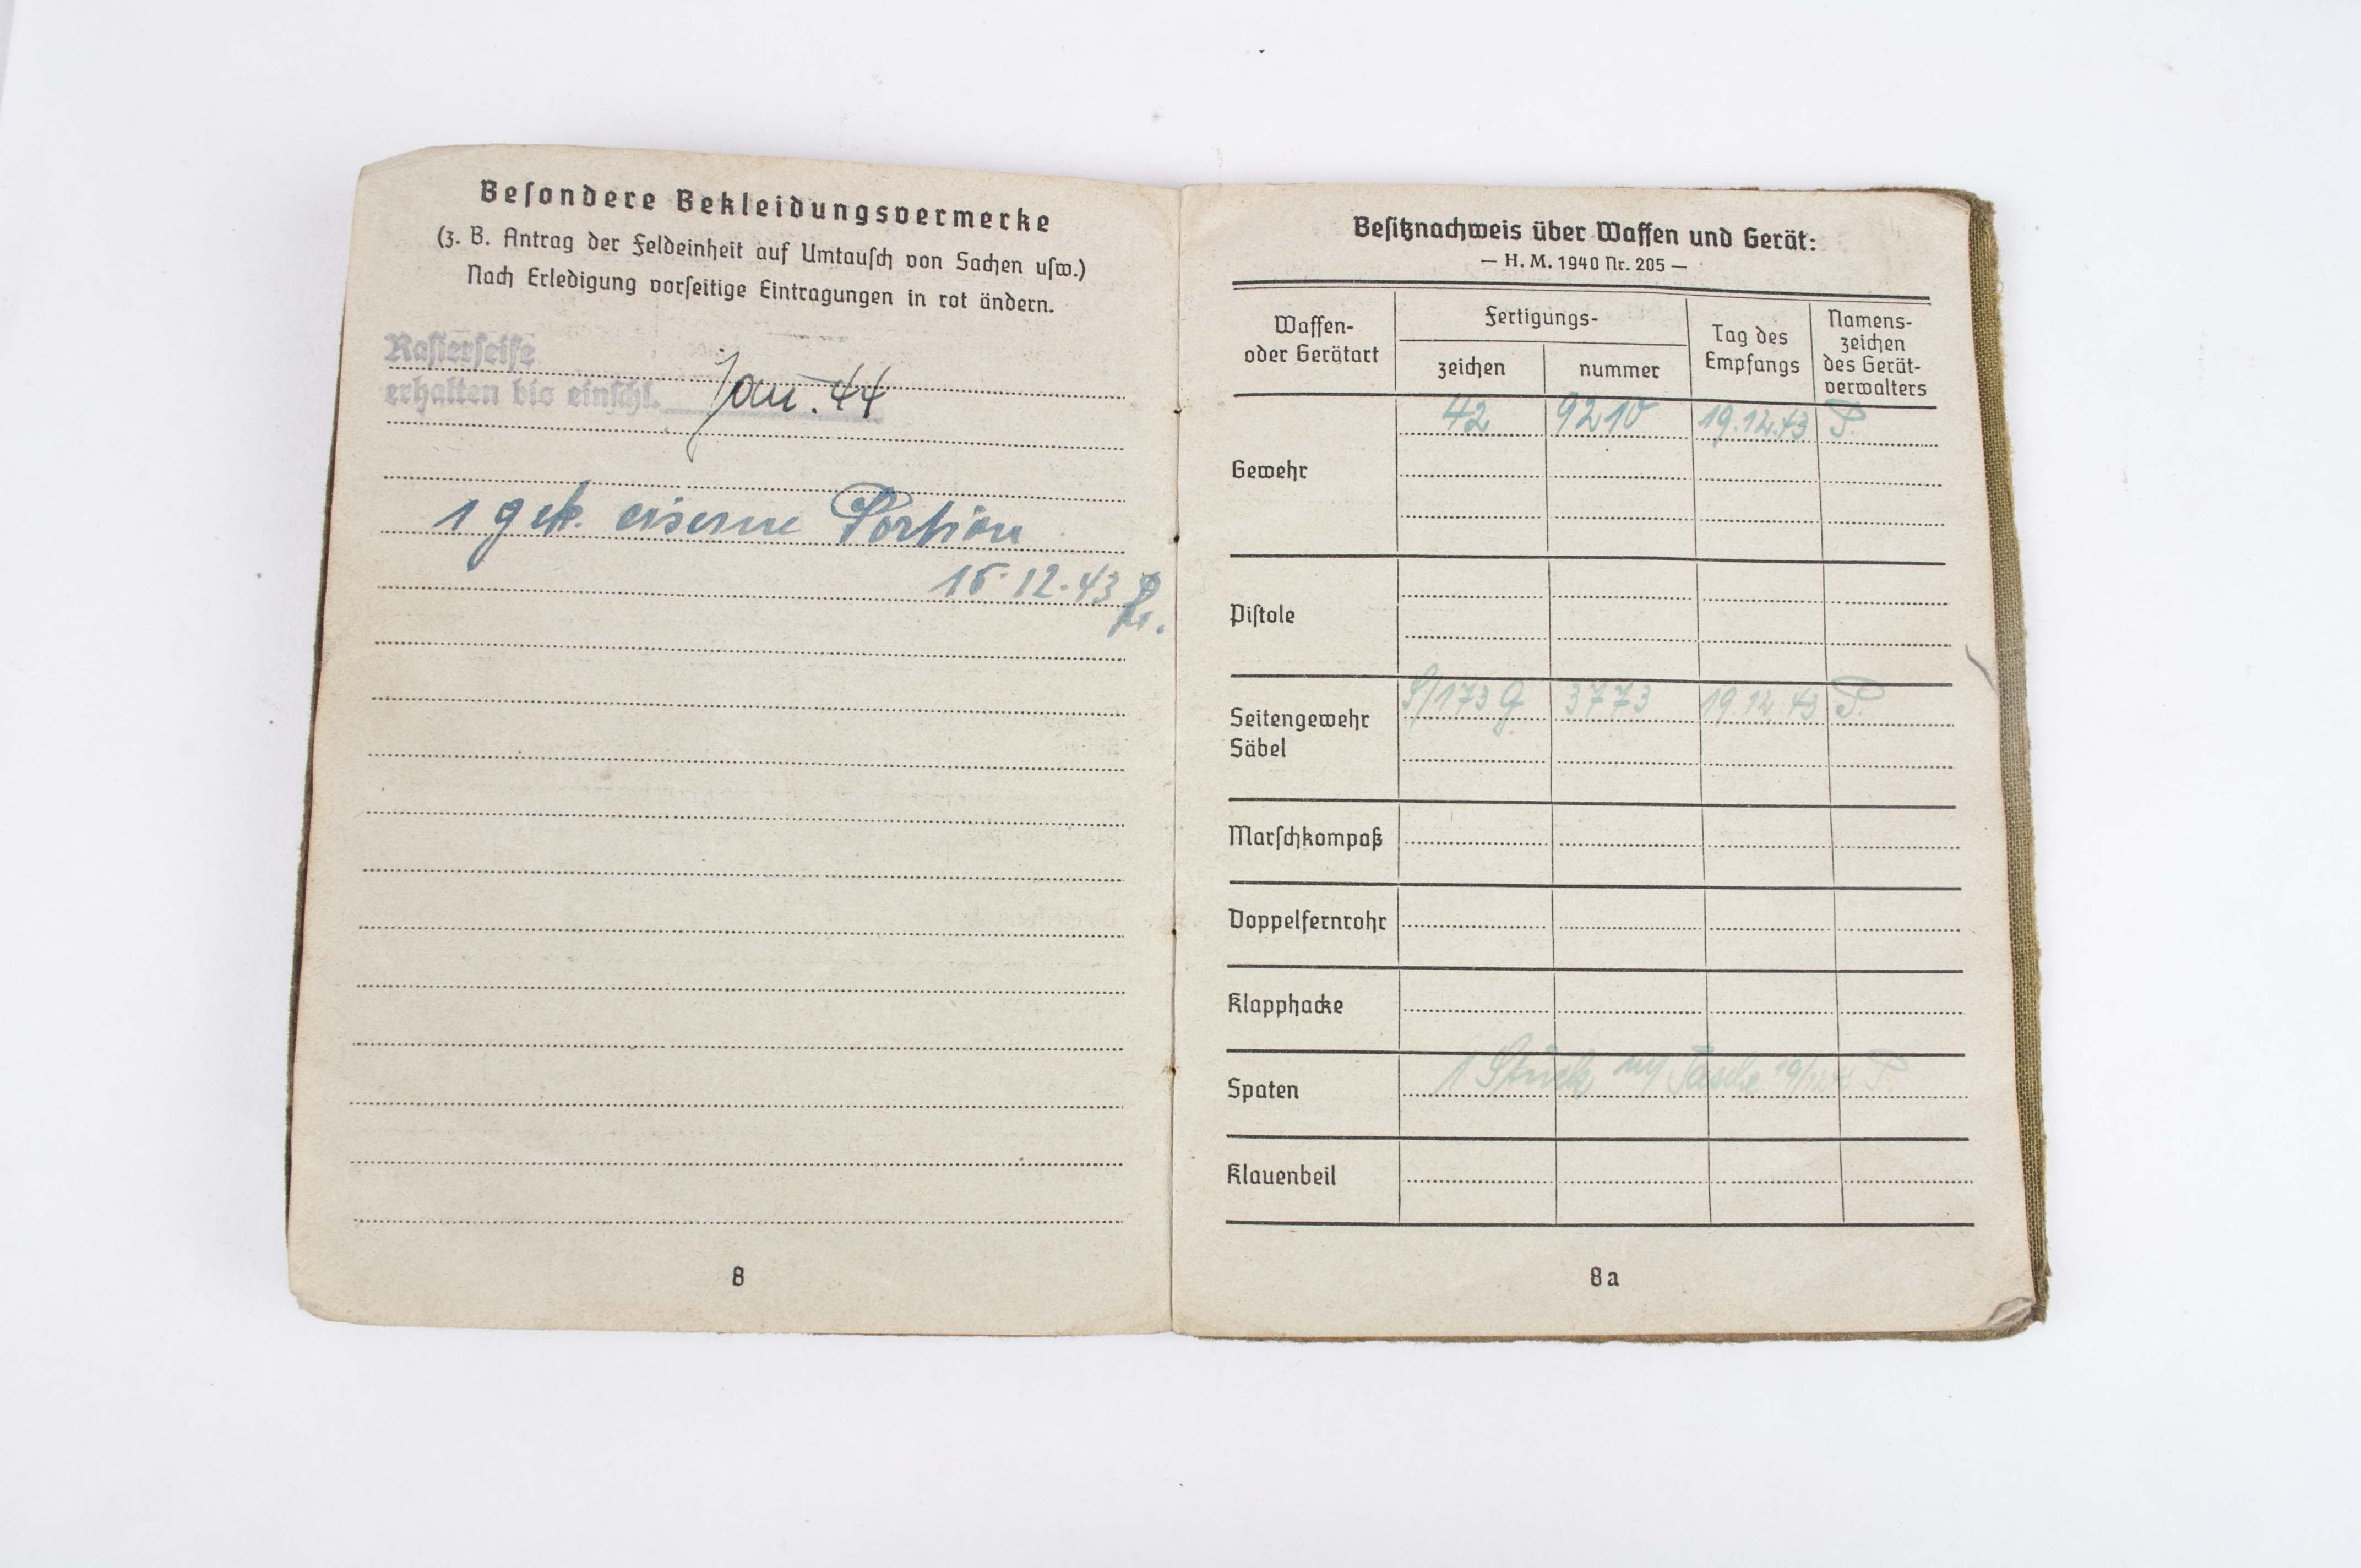 Besondere Bekleidungsvermerke
(z. B. Antrag der Feldeinheit auf Umtausch von Sachen usw.)
Nach Erledigung vorseitige Eintragungen in rot ändern.
Rasierseife
erhalten bis einschl. Jan. 44
1 gek. eiserne Portion
16.12.43
8
Besitznachweis über Waffen und Gerät:
— H. M. 1940 Nr. 205 —
Waffen- oder Gerätart
Fertigungs-
zeichen
nummer
Tag des Empfangs
Namens-zeichen des Gerät-verwalters
Gewehr 42 9210 19.12.43 P.
Pistole
Seitengewehr S/173 g 3773 19.12.43 P.
Säbel
Marschkompaß
Doppelfernrohr
Klapphacke
Spaten 1 Stück m/ Tasche 19/12.43 P.
Klauenbeil
8a